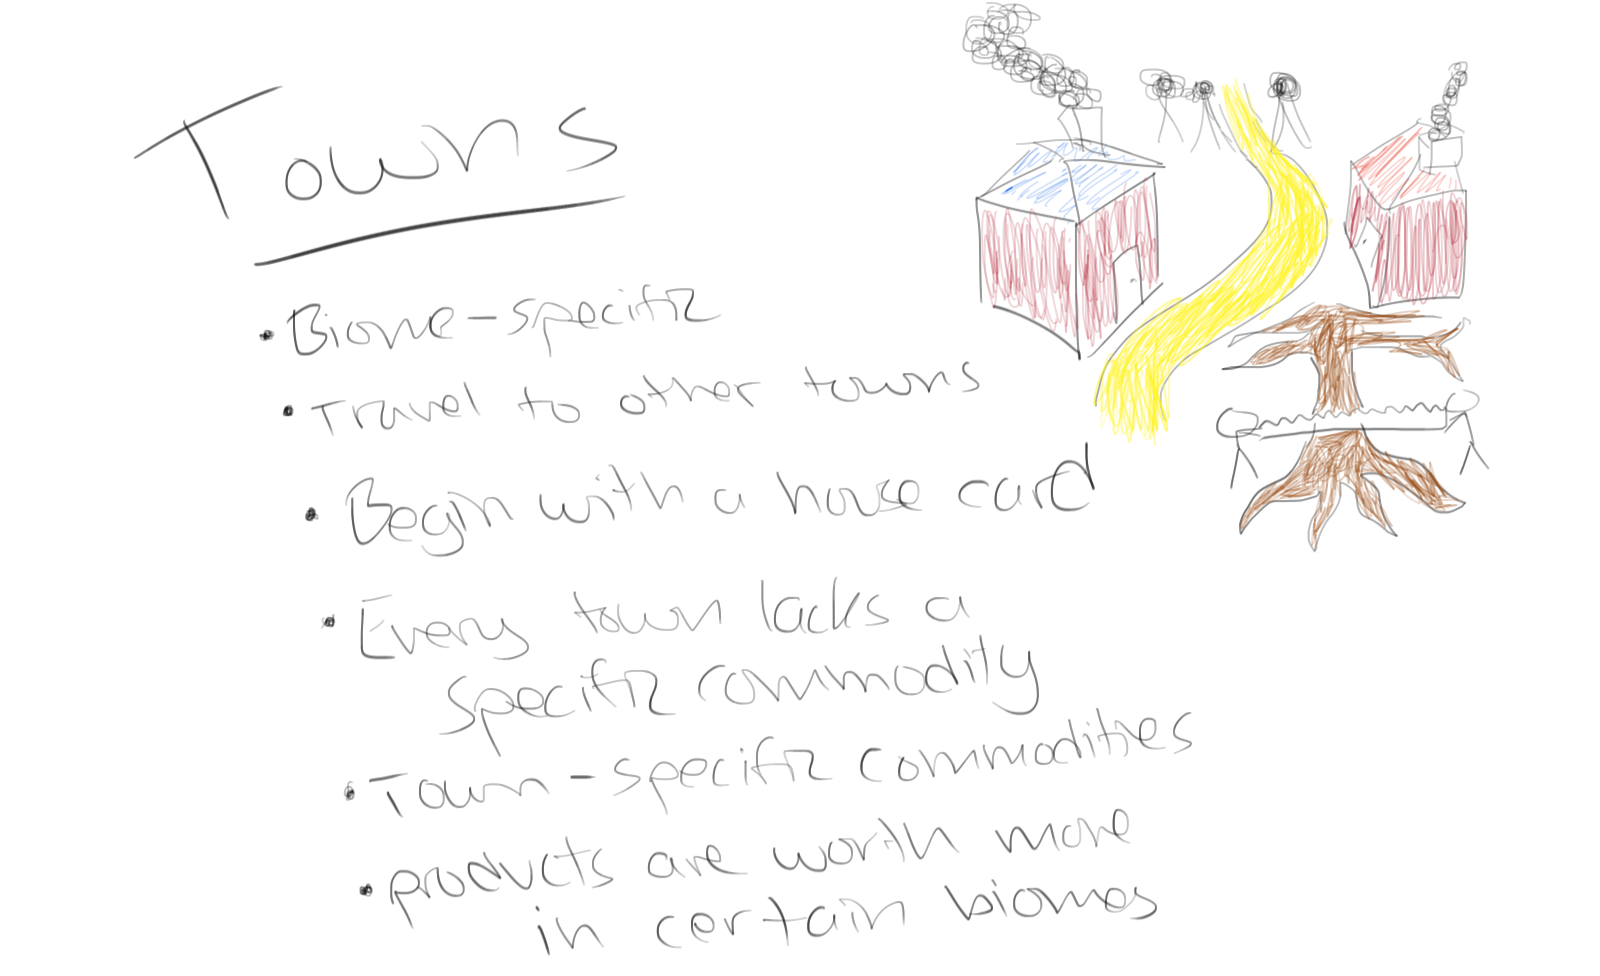 Towns
• Biome-specific
• Travel to other towns
• Begin with a house card
• Every town lacks a
specific commodity
• Town-specific commodities
• products are worth more
in certain biomes